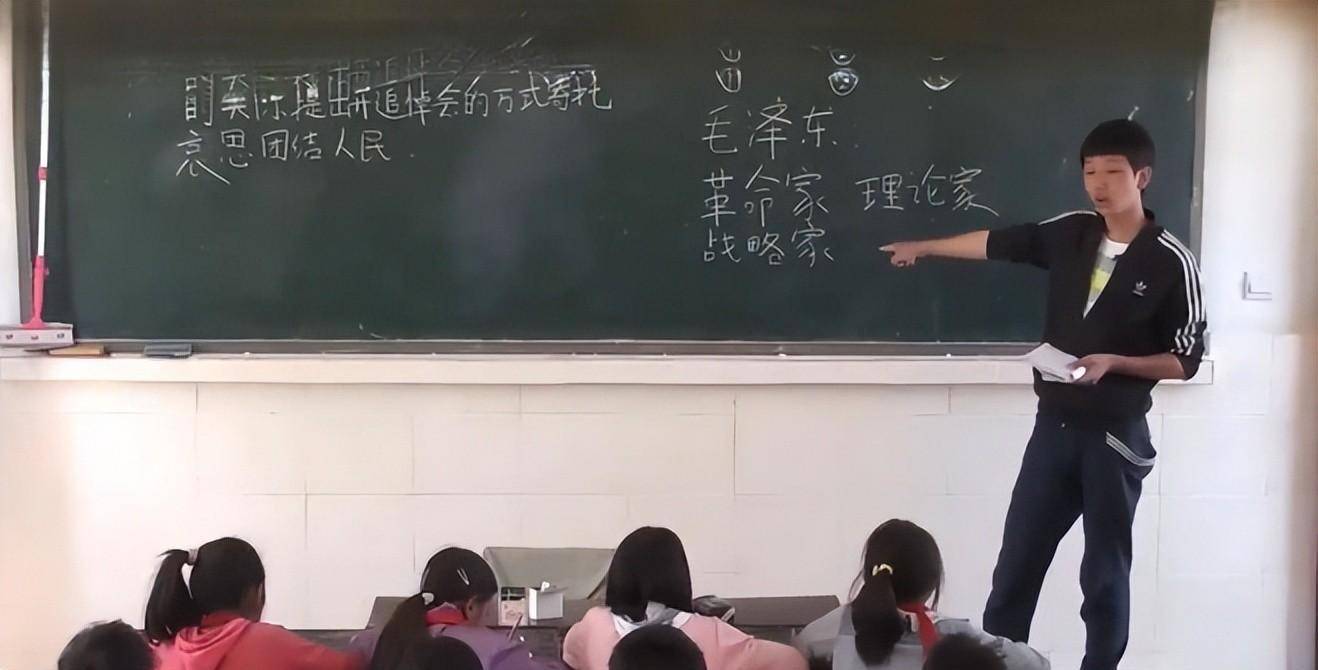 提出开追悼会的方式寄托
哀思团结人民
毛泽东
革命家 理论家
战略家